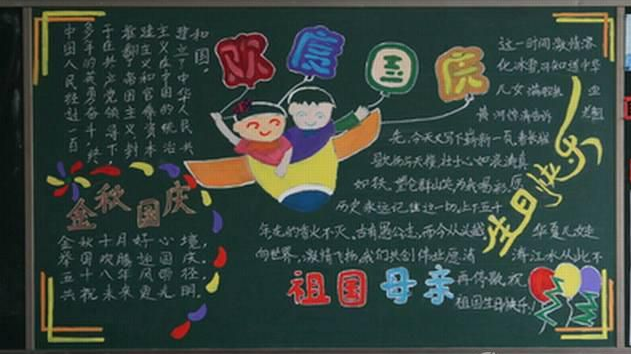 欢度国庆
中国人民经过一百
多年的英勇奋斗,终
于在共产党领导下,
推翻了帝国主义、封
建主义和官僚资本
主义在中国的统治
建立了中华人民共
和国。
金秋国庆
金秋十月好心境,
举国欢腾迎国庆。
五十八年风雨径,
共祝未来更光明。
生日快乐
这一时间激情溶
化冰雪,可知道中华
儿女
黄河
先,今天又写下崭新一页
歌
如铁,昆仑群山
历史永远记住这一切,上下五千
年光的香火不灭,古有愚公志,而今从义越 华夏儿女走
向世界,激情飞扬我们共创伟业愿清 清江水从此不
再停歇 祝
祖国生日快乐!
祖国母亲